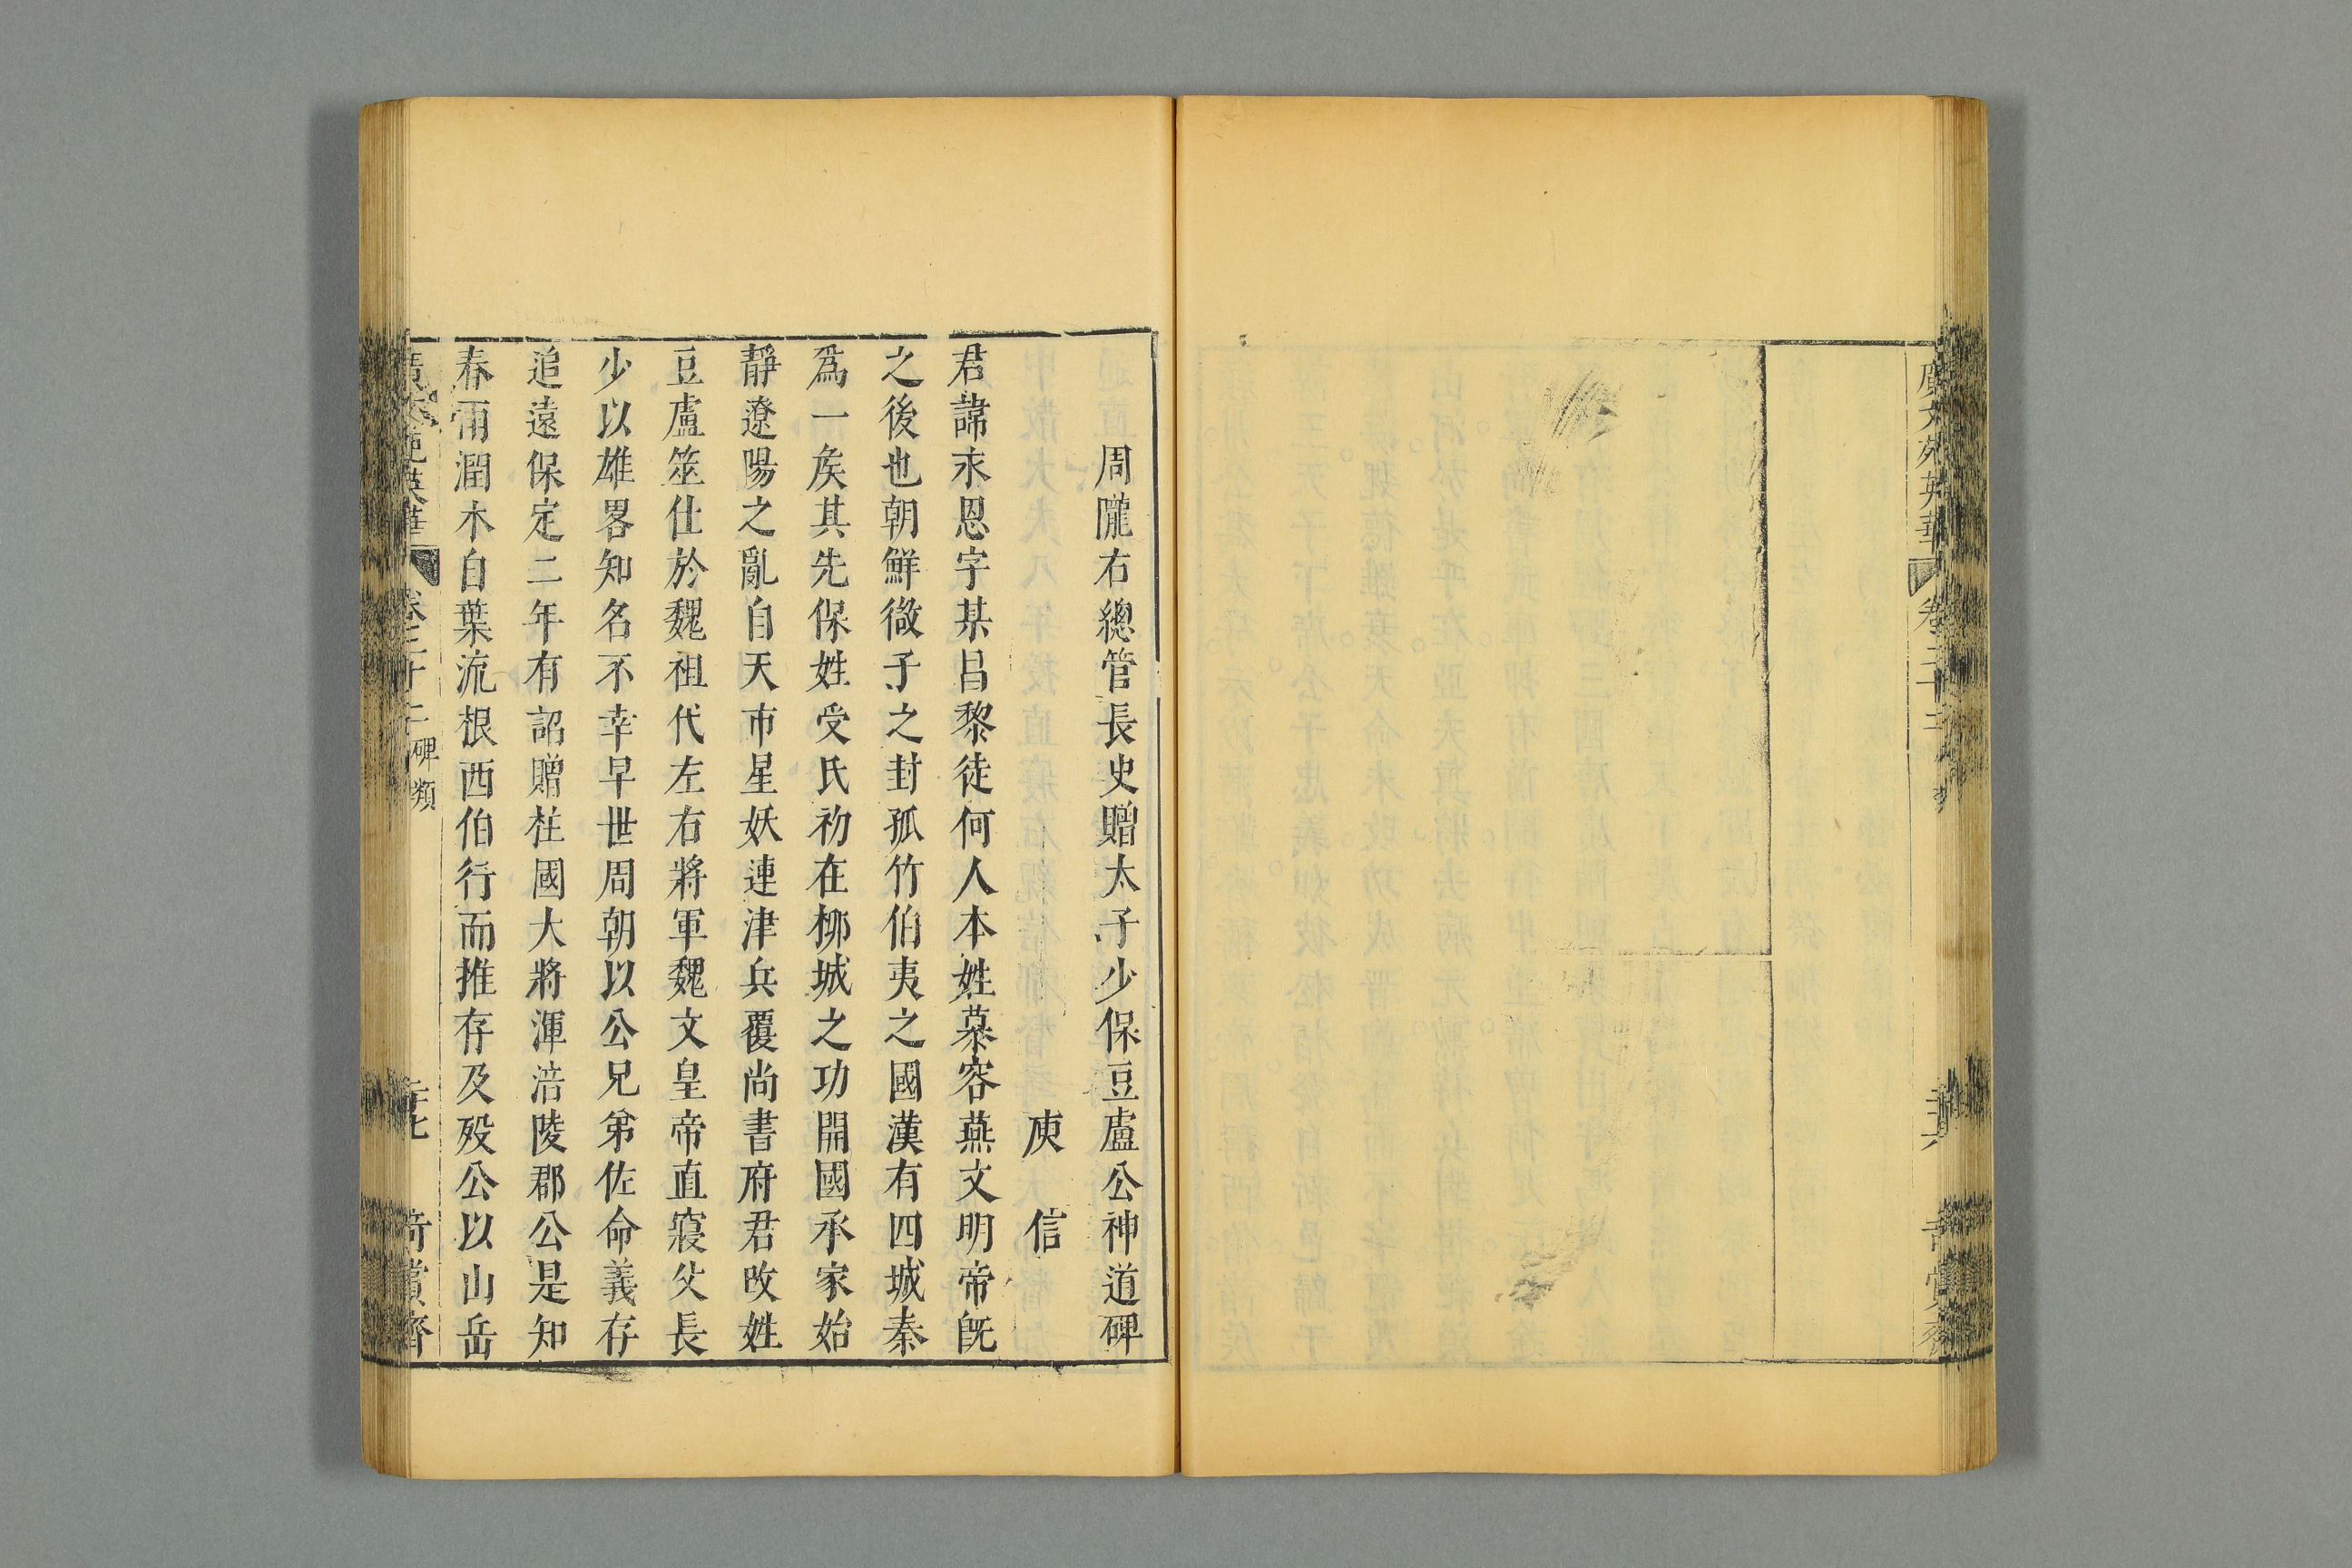 廣文苑英華 卷二十二
周隴右總管長史贈太子少保豆盧公神道碑
庾信
君諱永恩字某昌黎徒何人本姓慕容燕文明帝旣
之後也朝鮮微子之封孤竹伯夷之國漢有四城秦
爲一矦其先保姓受氏初在桺城之功開國承家始
靜遼陽之亂自天市星妖連津兵覆尚書府君攺姓
豆盧筮仕於魏祖代左右將軍魏文皇帝直寢父長
少以雄畧知名不幸早世周朝以公兄弟佐命義存
追遠保定二年有詔贈柱國大將渾涪陵郡公是知
春雨潤木自葉流根西伯行而推存及歿公以山岳
廣文苑英華 卷二十二 碑類 奇賞齊